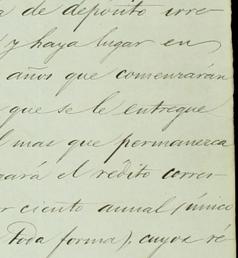 a de depósito irre
y haya lugar en
años que comenzarán
que se le entregue
l mas que permanezca
gará el rédito corres
r ciento anual (único
toda forma), cuyos ré